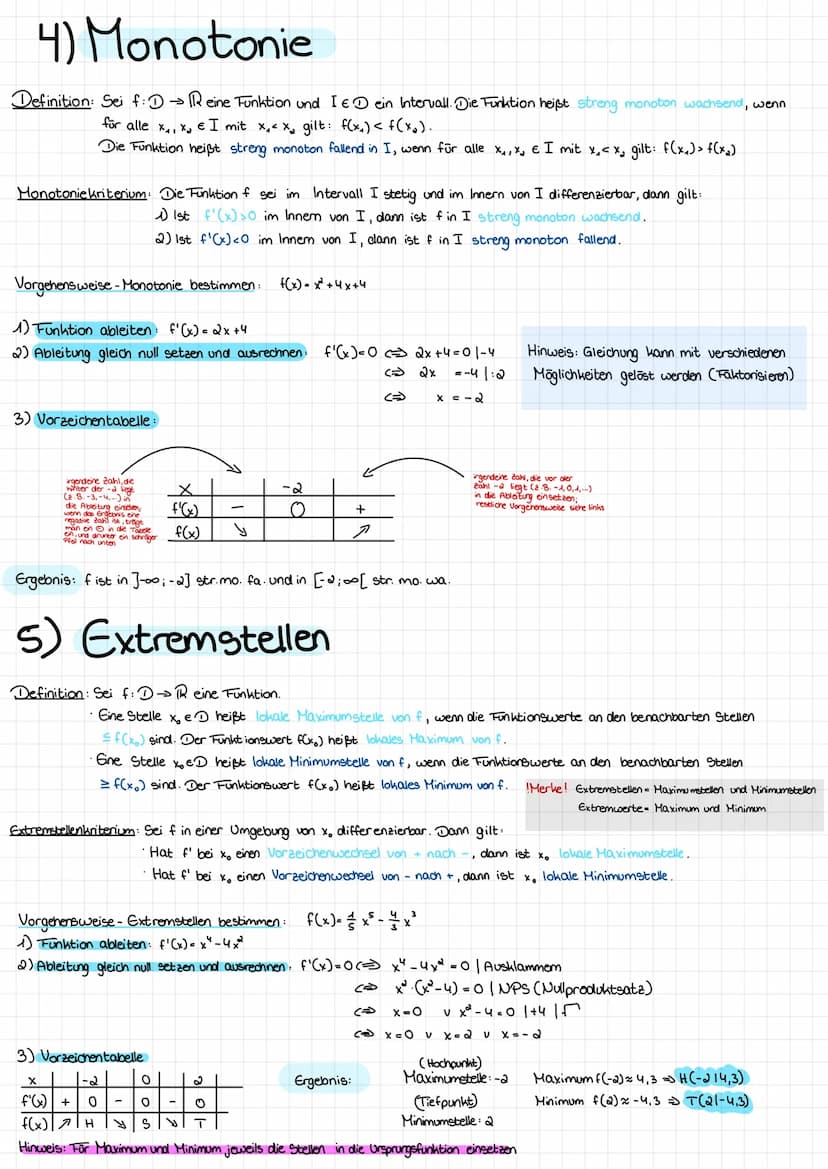 4) Monotonie
Definition: Sei f: D → ℝ eine Funktion und I ∈ D ein Intervall. Die Funktion heißt streng monoton wachsend, wenn
für alle x₁, x₂ ∈ I mit x₁ < x₂ gilt: f(x₁) < f(x₂).
Die Funktion heißt streng monoton fallend in I, wenn für alle x₁, x₂ ∈ I mit x₁ < x₂ gilt: f(x₁) > f(x₂)
Monotoniekriterium: Die Funktion f sei im Intervall I stetig und im Innern von I differenzierbar, dann gilt:
1) Ist f'(x)>0 im Innern von I, dann ist f in I streng monoton wachsend.
2) Ist f'(x)<0 im Innern von I, dann ist f in I streng monoton fallend.
Vorgehensweise - Monotonie bestimmen: f(x) = x² + 4x + 4
1) Funktion ableiten: f'(x) = 2x + 4
2) Ableitung gleich null setzen und ausrechnen: f'(x)=0 ⇔ 2x + 4 = 0 | -4
⇔ 2x = -4 | :2
⇔ x = -2
Hinweis: Gleichung kann mit verschiedenen
Möglichkeiten gelöst werden (Faktorisieren)
3) Vorzeichentabelle:
irgendeine Zahl, die
hinter der -2 liegt
(z.B. -3, -4, ...) in
die Ableitung einsetzen,
wenn das Ergebnis eine
negative Zahl ist, trägt
man ein ⊖ in die Tabelle
ein, und drunter ein schräger
Pfeil nach unten
x -2
f'(x) - 0 +
f(x) ↘ ↗
irgendeine Zahl, die vor der
Zahl -2 liegt (z.B. -1, 0, 1, ...)
in die Ableitung einsetzen;
restliche Vorgehensweise siehe links
Ergebnis: f ist in ]-∞; -2] str. mo. fa. und in [-2; ∞[ str. mo. wa.
5) Extremstellen
Definition: Sei f: D → ℝ eine Funktion.
· Eine Stelle x₀ ∈ D heißt lokale Maximumstelle von f, wenn die Funktionswerte an den benachbarten Stellen
≤ f(x₀) sind. Der Funktionswert f(x₀) heißt lokales Maximum von f.
· Eine Stelle x₀ ∈ D heißt lokale Minimumstelle von f, wenn die Funktionswerte an den benachbarten Stellen
≥ f(x₀) sind. Der Funktionswert f(x₀) heißt lokales Minimum von f.
!Merke! Extremstellen = Maximumstellen und Minimumstellen
Extremwerte = Maximum und Minimum
Extremstellenkriterium: Sei f in einer Umgebung von x₀ differenzierbar. Dann gilt:
· Hat f' bei x₀ einen Vorzeichenwechsel von + nach -, dann ist x₀ lokale Maximumstelle.
· Hat f' bei x₀ einen Vorzeichenwechsel von - nach +, dann ist x₀ lokale Minimumstelle.
Vorgehensweise - Extremstellen bestimmen: f(x) = 1/5 x⁵ - 4/3 x³
1) Funktion ableiten: f'(x) = x⁴ - 4x²
2) Ableitung gleich null setzen und ausrechnen: f'(x) = 0 ⇔ x⁴ - 4x² = 0 | Ausklammern
⇔ x² · (x² - 4) = 0 | NPS (Nullproduktsatz)
⇔ x = 0 ∨ x² - 4 = 0 | +4 | √
⇔ x = 0 ∨ x = 2 ∨ x = -2
3) Vorzeichentabelle
x -2 0 2
f'(x) + 0 - 0 - 0
f(x) ↗ H ↘ S ↘ T
Ergebnis:
(Hochpunkt)
Maximumstelle: -2 Maximum f(-2) ≈ 4,3 ⇒ H(-2|4,3)
(Tiefpunkt) Minimum f(2) ≈ -4,3 ⇒ T(2|-4,3)
Minimumstelle: 2
Hinweis: Für Maximum und Minimum jeweils die Stellen in die Ursprungsfunktion einsetzen